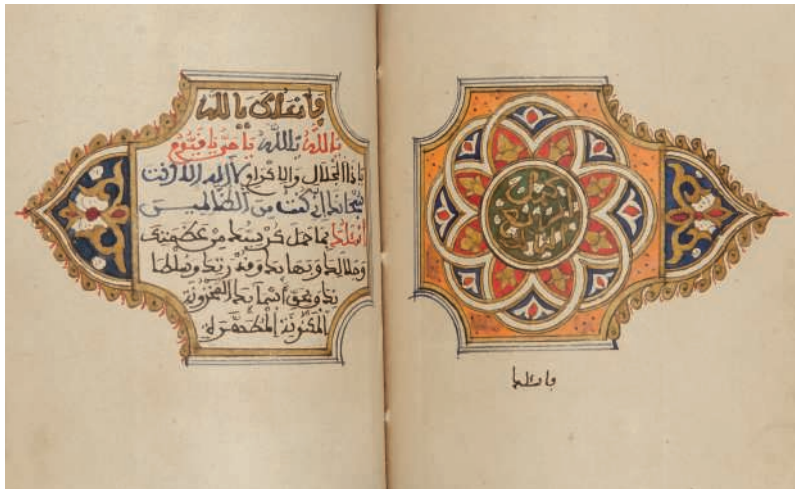 فصل
الربع
فأسئلك يا لله
يا لله يا لله يا حي يا قيوم
يا ذا الجلال والإكرام لا إله إلا أنت
سبحانك إني كنت من الظالمين
أسئلك بما حمل كرسيك من عظمتك
وجلالك وبهائك وقدرتك وسلطا
نك وبحق أسمائك المخزونة
المكنونة المطهرة